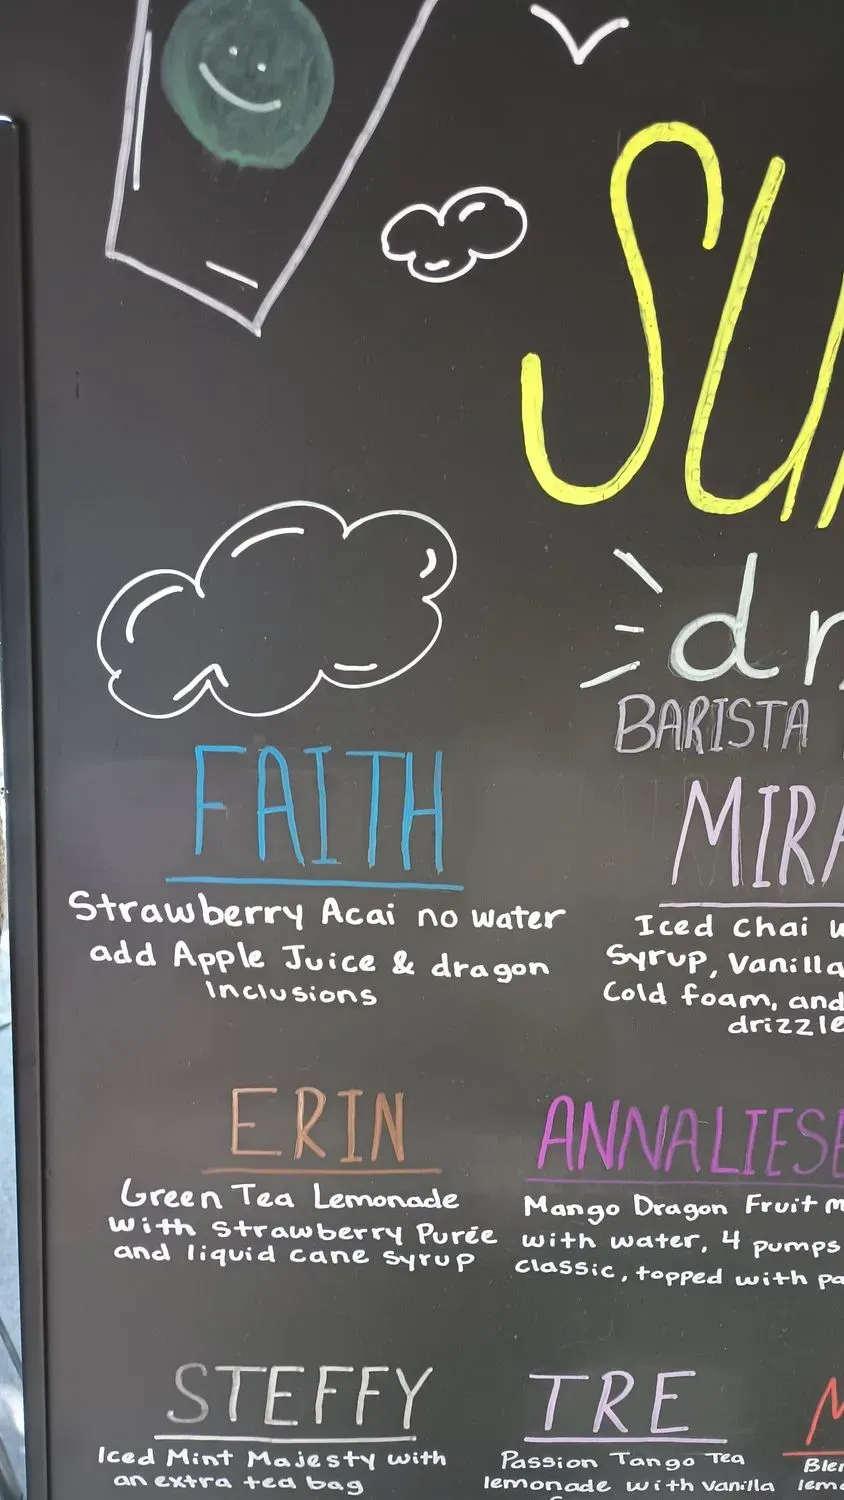 SU
BARISTA
FAITH
Strawberry Acai no water
add Apple Juice & dragon
Inclusions
MIRA
Iced Chai
Syrup, Vanilla
Cold foam, and
drizzle
ERIN
Green Tea Lemonade
with Strawberry Purée
and liquid cane syrup
ANNALIESE
Mango Dragon Fruit
with water, 4 pumps
classic, topped with
STEFFY
Iced Mint Majesty with
an extra tea bag
TRE
Passion Tango Tea
lemonade with Vanilla